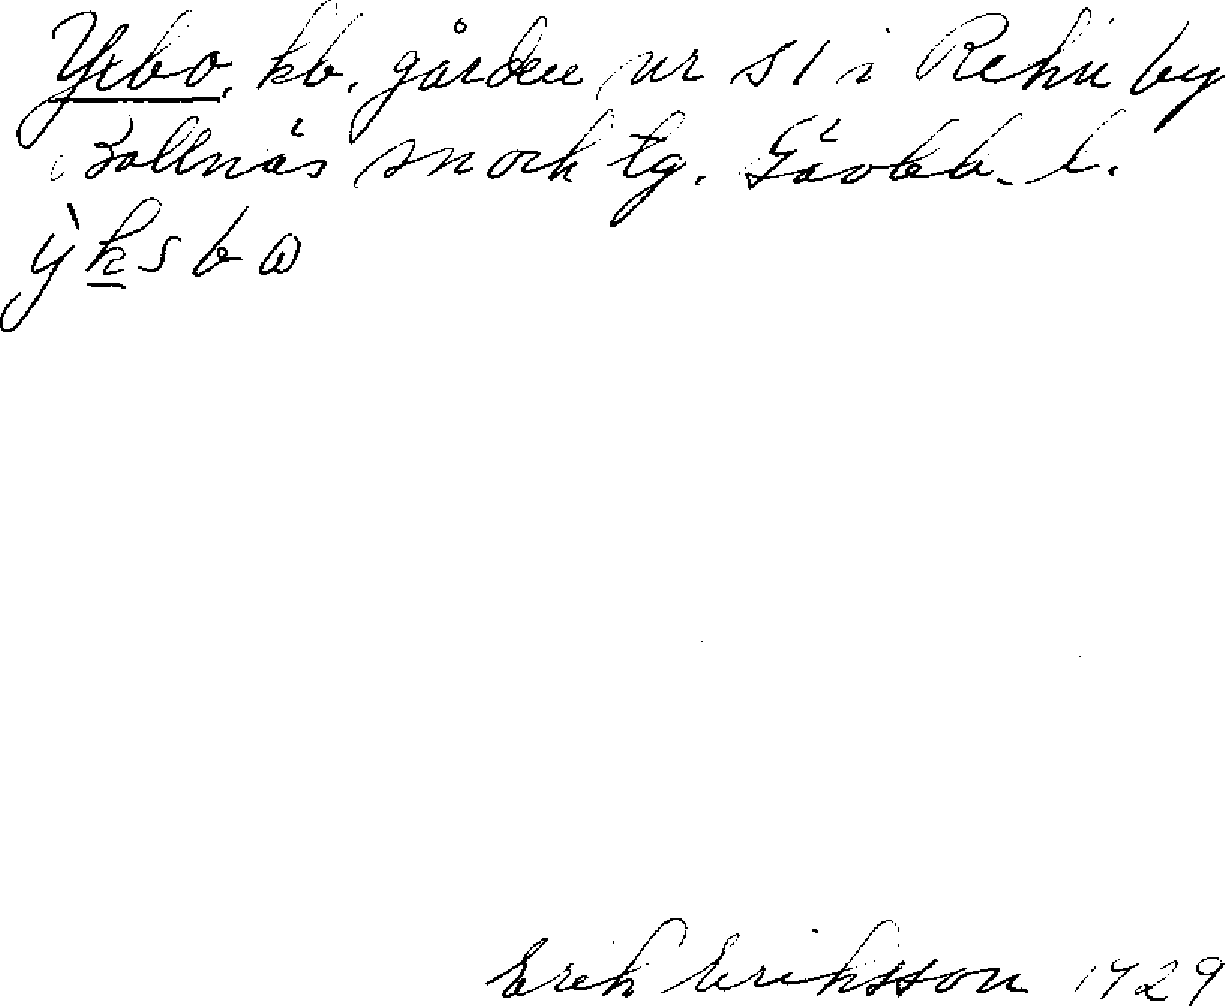 Yxbo, kb. gården nr 51 i Rehn by
Bollnäs sn och tg. Gävleb. l.
y̌ksbω
Erik Eriksson 1929